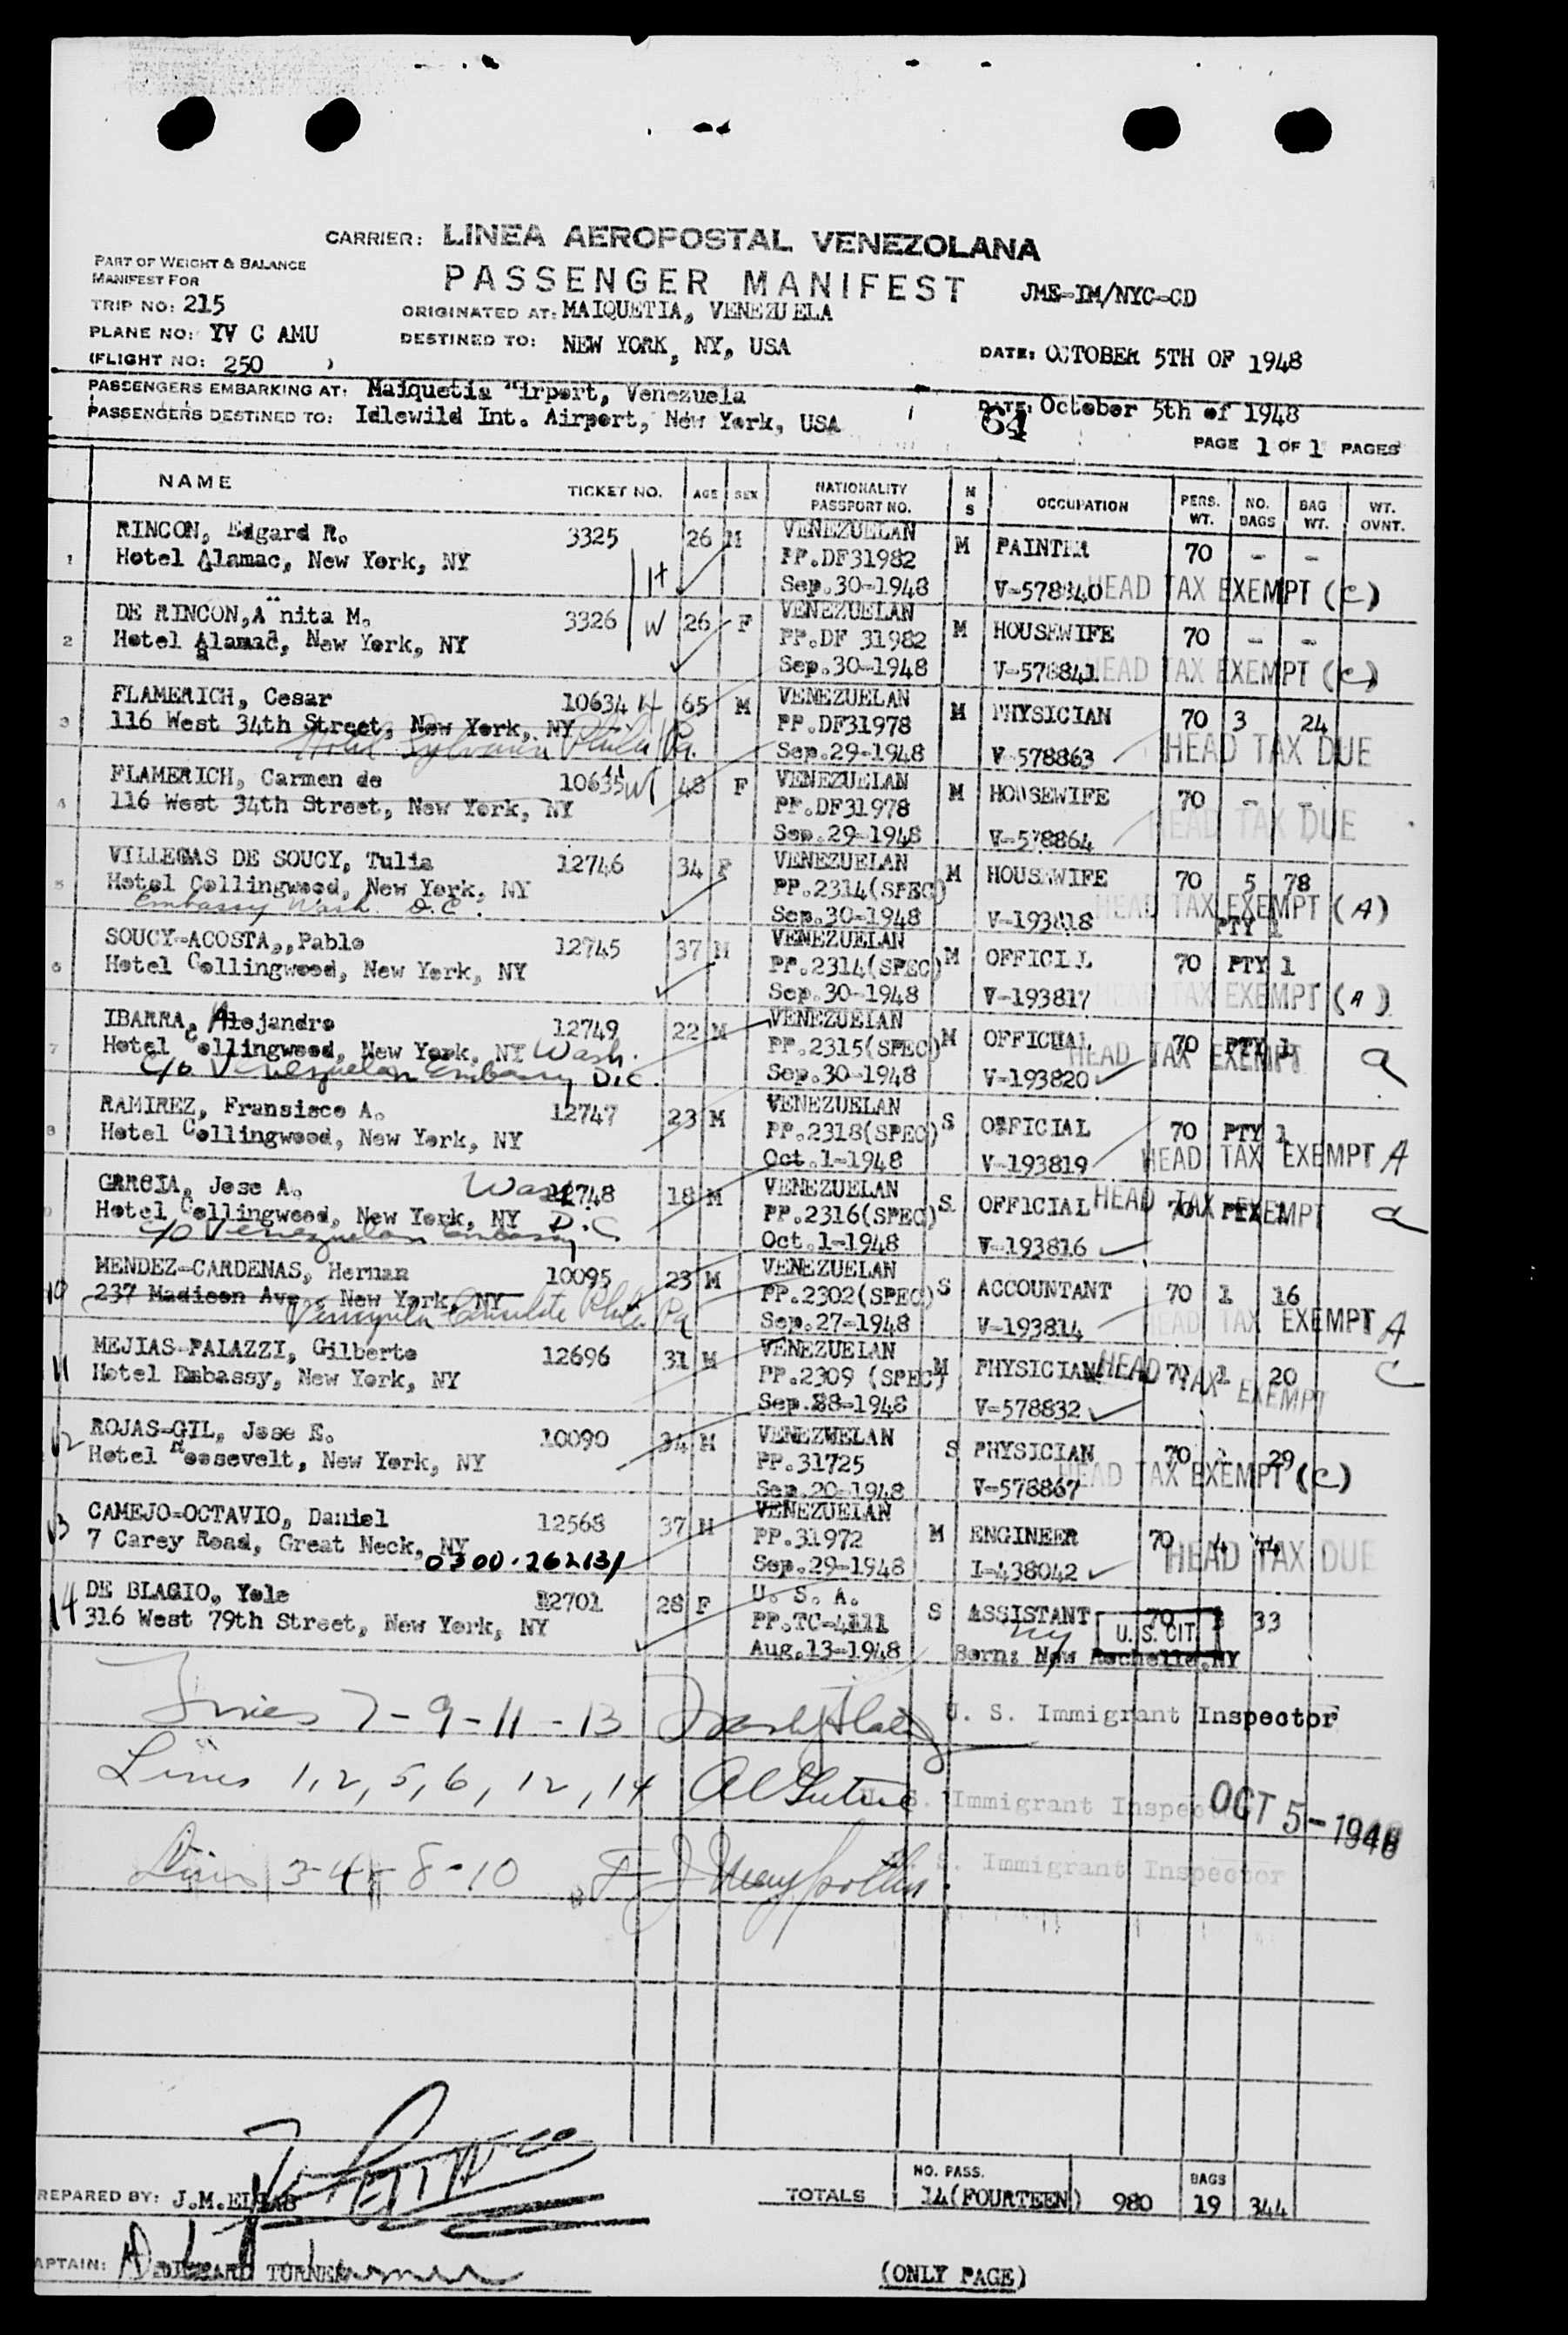 CARRIER: LINEA AEROPOSTAL VENEZOLANA
PART OF WEIGHT & BALANCE
MANIFEST FOR
PASSENGER MANIFEST
JME-IM/NYC-CD
TRIP NO: 215
ORIGINATED AT: MAIQUETIA, VENEZUELA
PLANE NO: YV C AMU
DESTINED TO: NEW YORK, NY, USA
DATE: OCTOBER 5TH OF 1948
(FLIGHT NO: 250 )
PASSENGERS EMBARKING AT: Maiquetia "irport, Venezuela
PASSENGERS DESTINED TO: Idlewild Int. Airport, New York, USA
DATE: October 5th of 1948
64
PAGE 1 OF 1 PAGES
NAME TICKET NO. AGE SEX NATIONALITY PASSPORT NO. M S OCCUPATION PERS. WT. NO. BAGS BAG WT. WT. OVNT.
RINCON, Edgard R. 3325 26 M VENEZUELAN M PAINTER 70 - -
1 Hotel Alamac, New York, NY H PP.DF31982
Sep.30-1948 V-578840 HEAD TAX EXEMPT (C)
DE RINCON,A"nita M. 3326 W 26 F VENEZUELAN M HOUSEWIFE 70 - -
2 Hotel Alamac, New York, NY PP.DF 31982
Sep.30-1948 V-578841 HEAD TAX EXEMPT (C)
FLAMERICH, Cesar 10634 H 65 M VENEZUELAN M PHYSICIAN 70 3 24
3 116 West 34th Street, New York, NY PP.DF31978
Hotel Sylvania Phila Pa. Sep.29-1948 V-578863 HEAD TAX DUE
FLAMERICH, Carmen de 10635 W 48 F VENEZUELAN M HOUSEWIFE 70 - -
4 116 West 34th Street, New York, NY PP.DF31978
Sep.29-1948 V-578864 HEAD TAX DUE
VILLEGAS DE SOUCY, Tulia 12746 34 F VENEZUELAN M HOUSEWIFE 70 5 78
5 Hotel Collingwood, New York, NY PP.2314(SPEC)
Embassy Wash. D.C. Sep.30-1948 V-193818 HEAD TAX EXEMPT (A)
PTY 1
SOUCY-ACOSTA,,Pablo 12745 37 M VENEZUELAN M OFFICIAL 70 PTY 1
6 Hotel Collingwood, New York, NY PP.2314(SPEC)
Sep.30-1948 V-193817 HEAD TAX EXEMPT (A)
IBARRA, Alejandro 12749 22 M VENEZUELAN M OFFICIAL 70 PTY 1
7 Hotel Collingwood, New York, NY Wash. PP.2315(SPEC) HEAD TAX EXEMPT a
c/o Venezuelan Embassy D.C. Sep.30-1948 V-193820
RAMIREZ, Fransisco A. 12747 23 M VENEZUELAN S OFFICIAL 70 PTY 1
8 Hotel Collingwood, New York, NY PP.2318(SPEC)
Oct.1-1948 V-193819 HEAD TAX EXEMPT A
GARCIA, Jose A. Wash 12748 18 M VENEZUELAN S OFFICIAL 70 PTY 1
9 Hotel Collingwood, New York, NY D.C PP.2316(SPEC) HEAD TAX EXEMPT a
c/o Venezuelan Embassy Oct.1-1948 V-193816
MENDEZ-CARDENAS, Hernan 10095 23 M VENEZUELAN S ACCOUNTANT 70 1 16
10 237 Madison Ave., New York, NY PP.2302(SPEC)
Venezuela Consulate Phila Pa Sep.27-1948 V-193814 HEAD TAX EXEMPT A
MEJIAS-PALAZZI, Gilberto 12696 31 M VENEZUELAN M PHYSICIAN 70 1 20
11 Hotel Embassy, New York, NY PP.2309 (SPEC) HEAD TAX EXEMPT C
Sep.28-1948 V-578832
ROJAS-GIL, Jose E. 10090 34 M VENEZUELAN S PHYSICIAN 70 1 29
12 Hotel Roosevelt, New York, NY PP.31725
Sep.20-1948 V-578867 HEAD TAX EXEMPT (C)
CAMEJO-OCTAVIO, Daniel 12568 37 M VENEZUELAN M ENGINEER 70 4 44
13 7 Carey Road, Great Neck, NY PP.31972
0300-262131 Sep.29-1948 I-438042 HEAD TAX DUE
DE BLAGIO, Yole 12701 28 F U. S. A. S ASSISTANT 70 3 33
14 316 West 79th Street, New York, NY PP.TC-4111 ny U. S. CIT.
Aug.13-1948 Born: New Rochelle.NY
Lines 7-9-11-13 U. S. Immigrant Inspector
Lines 1,2,5,6,12,14 U. S. Immigrant Inspector
OCT 5-1948
Lines 3-4-8-10 U. S. Immigrant Inspector
NO. PASS. BAGS
REPARED BY: J.M.ELIAS TOTALS 14(FOURTEEN) 980 19 344
APTAIN: TURNER
(ONLY PAGE)